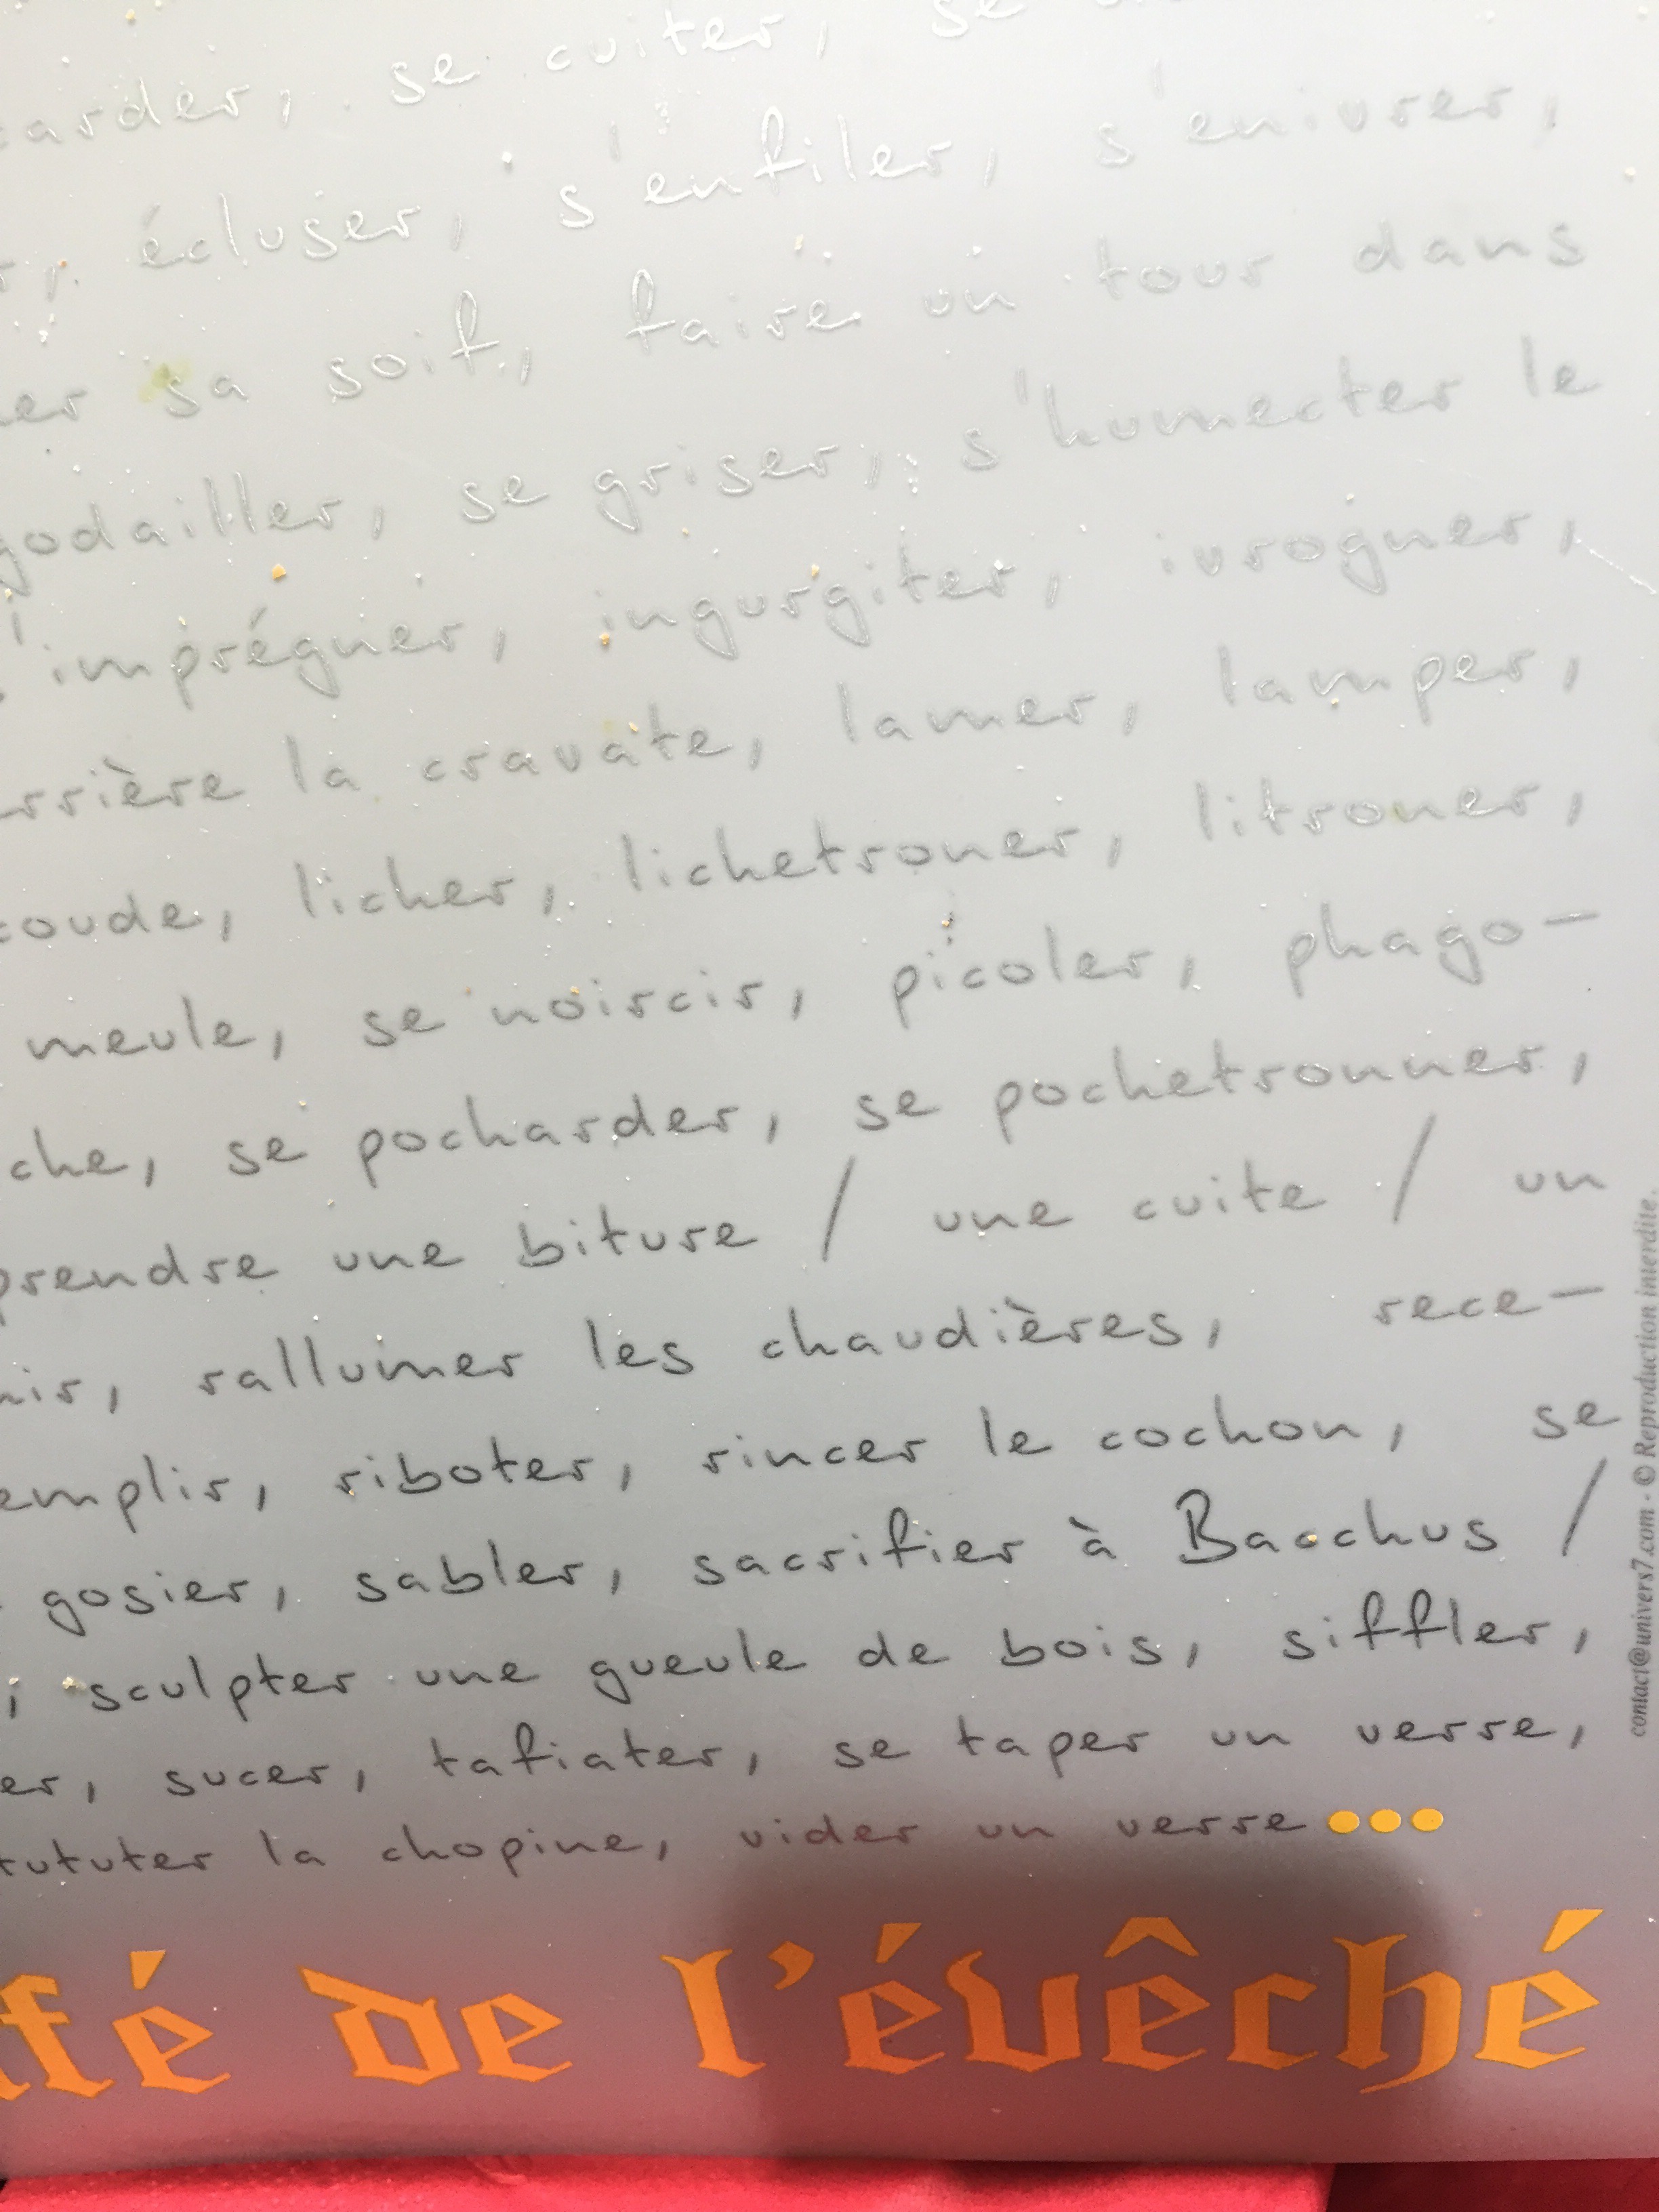 se cuiter, se
écluser, s'enfiler, s'enivrer,
sa soif, faire un tour dans
godailler, se griser, s'humecter le
s'imprégner, ingurgiter, ivrogner,
la cravate, lamer, lamper,
coude, licher, lichetroner, litroner,
meule, se noircir, picoler, phago-
che, se pocharder, se pochetronner,
prendre une biture / une cuite / un
rallumer les chaudières, rece-
emplir, riboter, rincer le cochon, se
gosier, sabler, sacrifier à Bacchus /
sculpter une gueule de bois, siffler,
er, sucer, tafiater, se taper un verre,
tututer la chopine, vider un verre...
fé de l'évêché
contact@univers7.com - © Reproduction interdite.